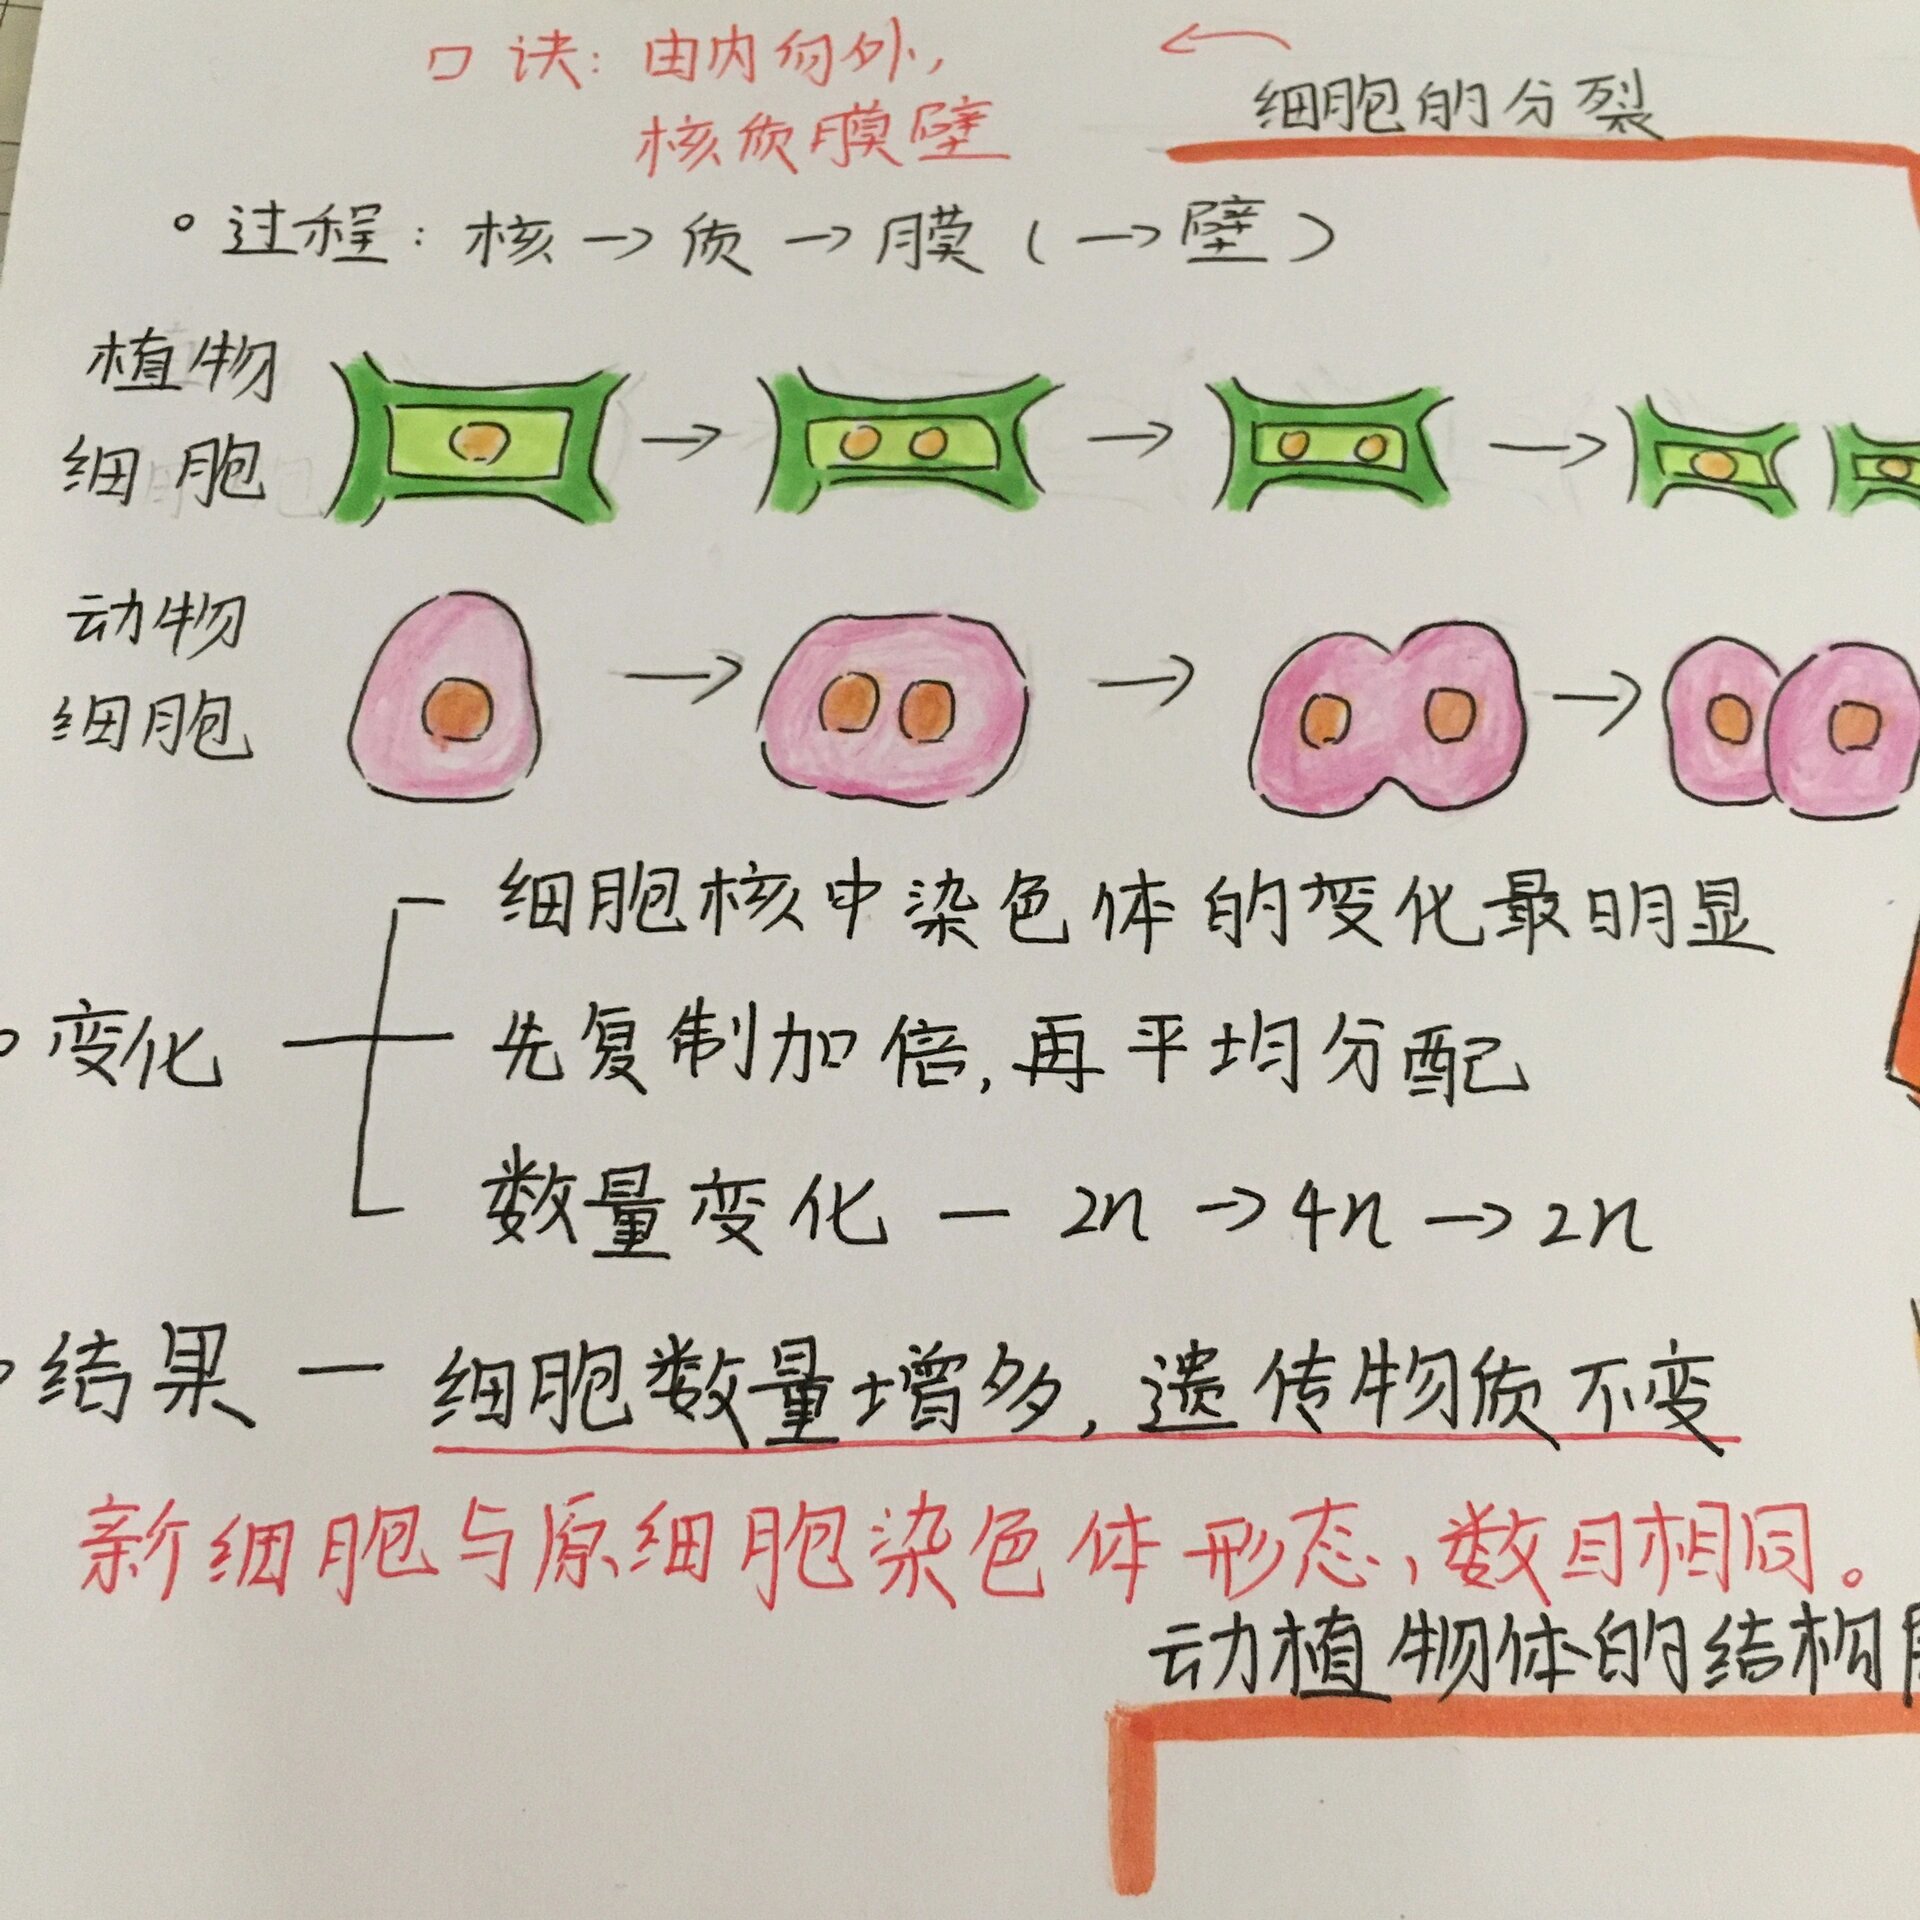 口诀：由内向外，
核质膜壁
细胞的分裂
过程：核→质→膜（→壁）
植物
细胞
动物
细胞
细胞核中染色体的变化最明显
变化
先复制加倍，再平均分配
数量变化 — 2n→4n→2n
结果 — 细胞数量增多，遗传物质不变
新细胞与原细胞染色体形态、数目相同。
动植物体的结构